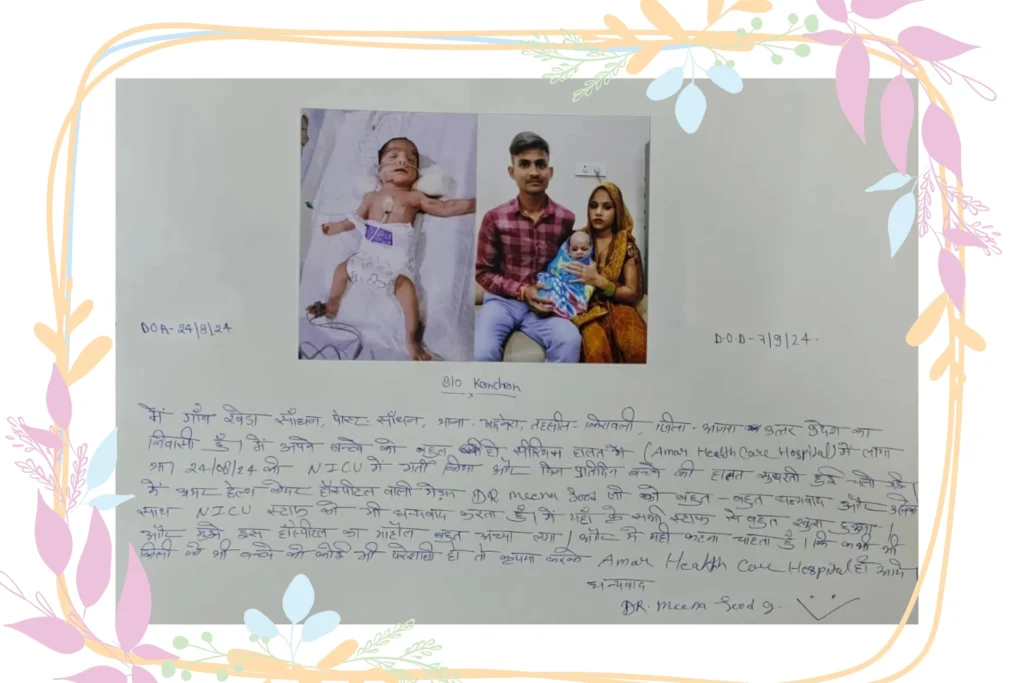 DOA- 24/8/24
D.O.D- 7/9/24.
B/o Kanchan
मैं गाँव खेडा साँधन, पोस्ट- साँधन, थाना- अछनेरा, तहसील- किरावली, जिला- आगरा उत्तर प्रदेश का
निवासी हूँ। मैं अपने बच्चे को बहुत ही सीरियस हालत में (Amar Health Care Hospital) में लाया
था। 24/08/24 को NICU में भर्ती किया और फिर प्रतिदिन बच्चे की हालत सुधरती हुई चली गई।
मैं अमर हेल्थ केयर हॉस्पीटल वाली मैडम DR meena sood जी को बहुत-बहुत धन्यवाद और उनके
साथ NICU स्टाफ को भी धन्यवाद करता हूँ। मैं यहाँ के सभी स्टाफ से बहुत खुश हुआ।
और मुझे इस हॉस्पीटल का माहौल बहुत अच्छा लगा। और मैं यही कहना चाहता हूँ। कि कभी भी
किसी को भी बच्चे की कोई भी परेशानी हो तो कृपया करके Amar Health Care Hospital ही आये।
धन्यवाद
DR. meena Sood